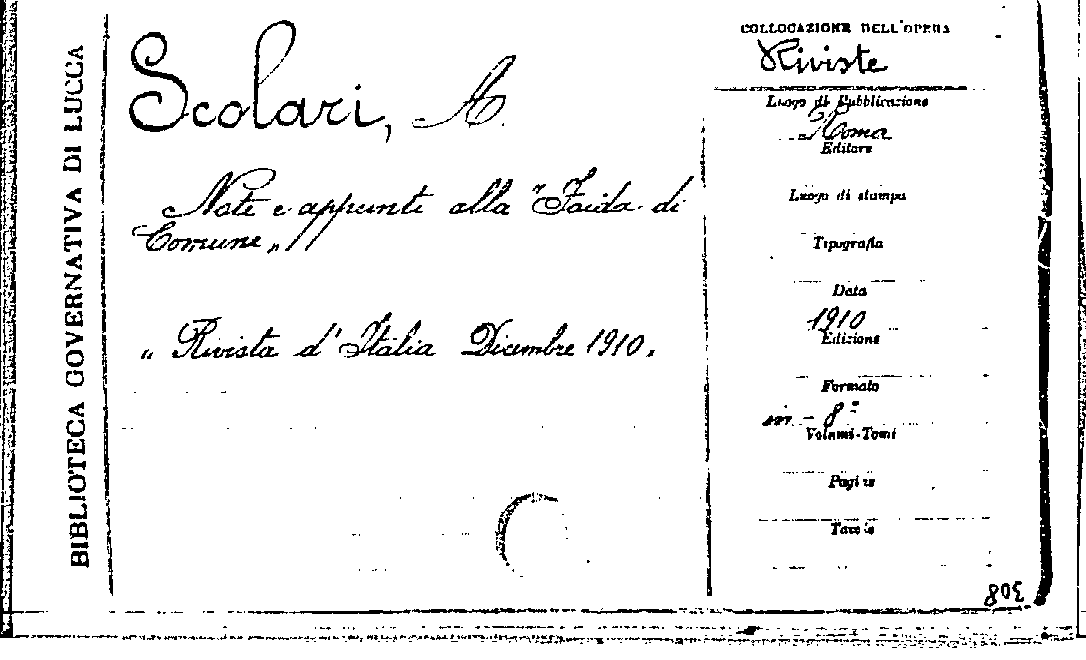 BIBLIOTECA GOVERNATIVA DI LUCCA
Scolari, A.
Note e appunti alla "Faida di
Comune„
„ Rivista d'Italia Dicembre 1910.
COLLOCAZIONE DELL'OPERA
Riviste
Luogo di Pubblicazione
Roma
Editore
Luogo di stampa
Tipografia
Data
1910
Edizione
Formato
in - 8°
Volumi-Tomi
Pagine
Tavole
308